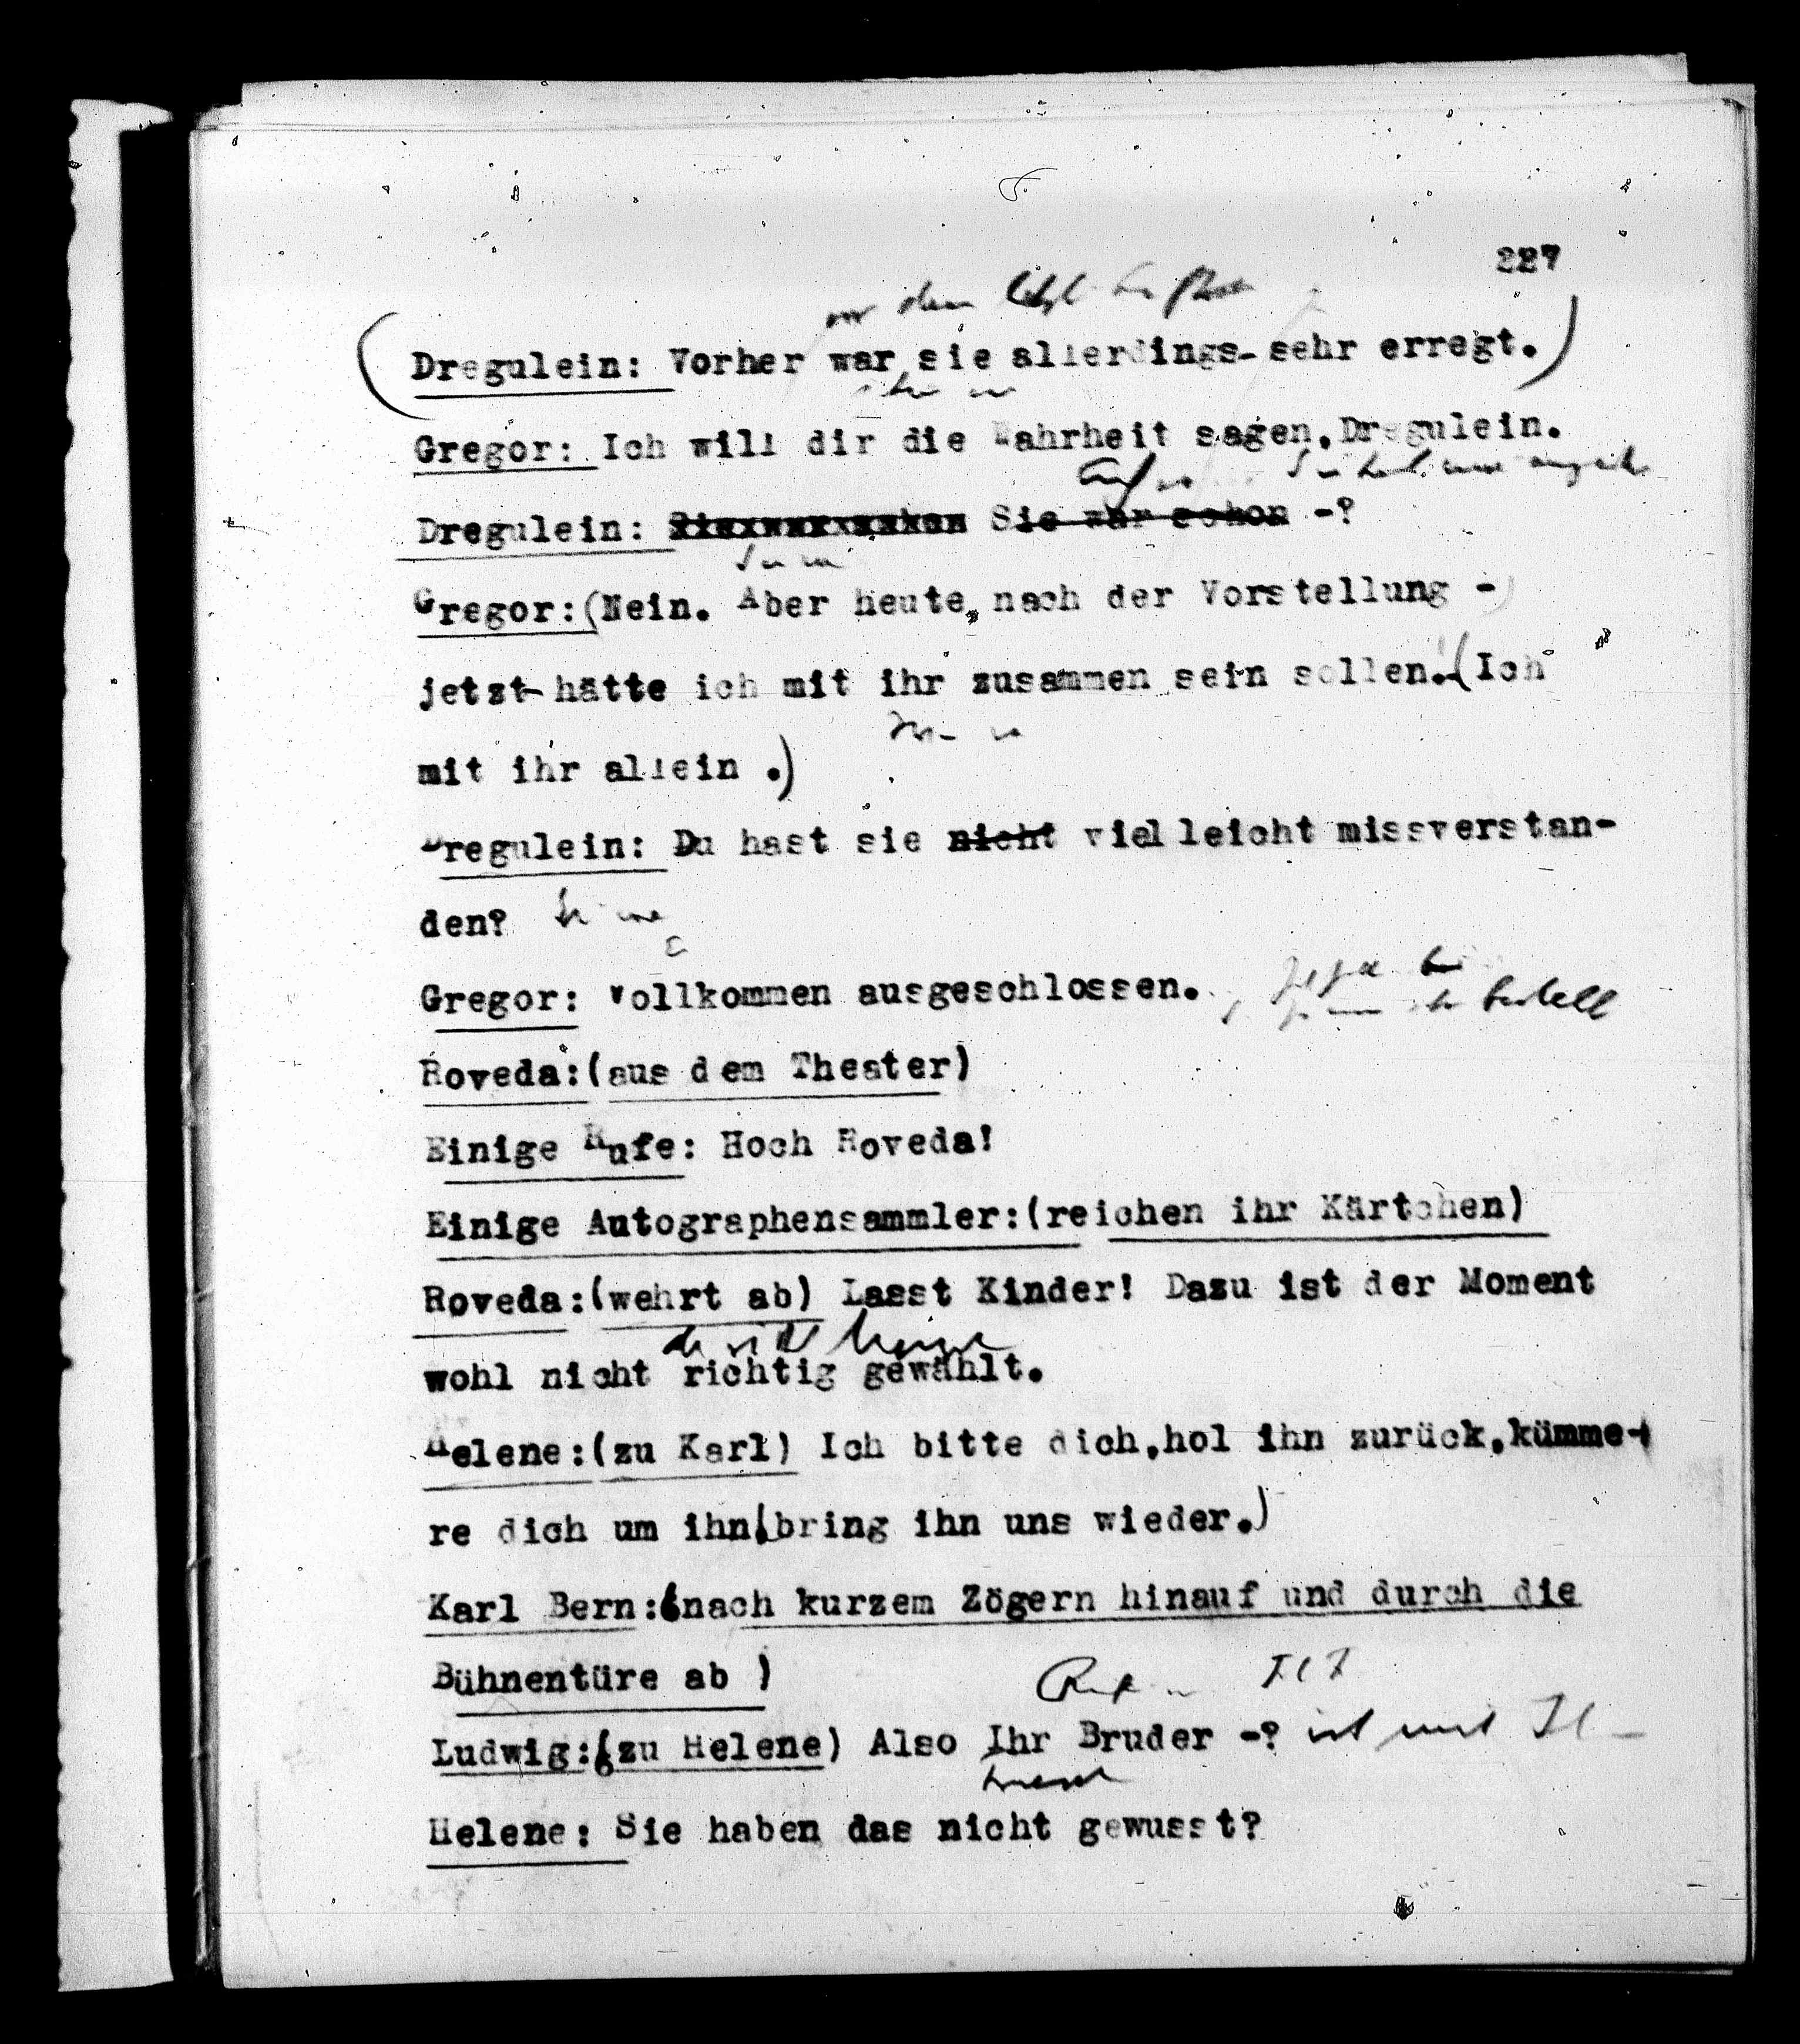 227
(Dregulein: Vorher war sie allerdings sehr erregt.)
Gregor: Ich will dir die Wahrheit sagen, Dregulein.
Dregulein: Sie war schon -?
Gregor:(Nein. Aber heute, nach der Vorstellung -)
jetzt hätte ich mit ihr zusammen sein sollen.(Ich
mit ihr allein .)
Dregulein: Du hast sie nicht vielleicht missverstan-
den?
Gregor: Vollkommen ausgeschlossen.
Roveda:(aus dem Theater)
Einige Rufe: Hoch Roveda!
Einige Autographensammler:(reichen ihr Kärtchen)
Roveda:(wehrt ab) Lasst Kinder! Dazu ist der Moment
wohl nicht richtig gewählt.
Helene:(zu Karl) Ich bitte dich, hol ihn zurück, kümme-
re dich um ihn(bring ihn uns wieder.)
Karl Bern:(nach kurzem Zögern hinauf und durch die
Bühnentüre ab )
Ludwig:(zu Helene) Also Ihr Bruder -?
Helene: Sie haben das nicht gewusst?